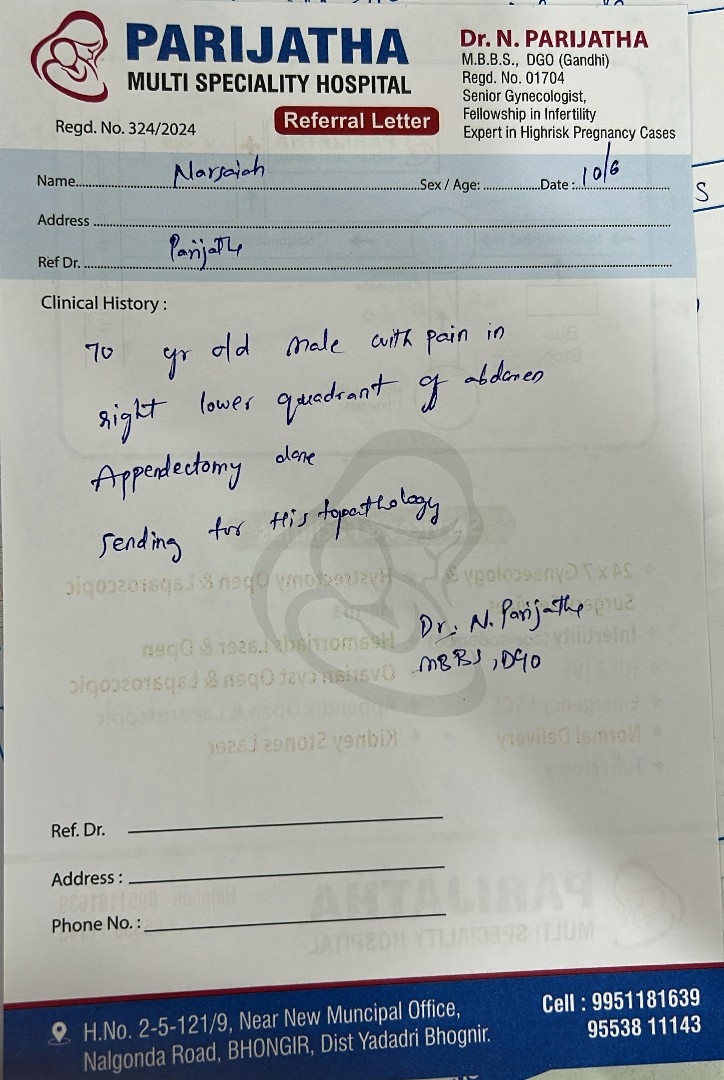 PARIJATHA
MULTI SPECIALITY HOSPITAL
Regd. No. 324/2024
Referral Letter
Dr. N. PARIJATHA
M.B.B.S., DGO (Gandhi)
Regd. No. 01704
Senior Gynecologist,
Fellowship in Infertility
Expert in Highrisk Pregnancy Cases
Name Narsaiah Sex / Age: Date: 10/6
Address
Ref Dr. Parijatha
Clinical History :
70 yr old male with pain in
right lower quadrant of abdomen
Appendectomy done
Sending for Histopathology
Dr. N. Parijatha
MBBS, DGO
Ref. Dr.
Address :
Phone No. :
H.No. 2-5-121/9, Near New Muncipal Office,
Nalgonda Road, BHONGIR, Dist Yadadri Bhognir.
Cell : 9951181639
95538 11143